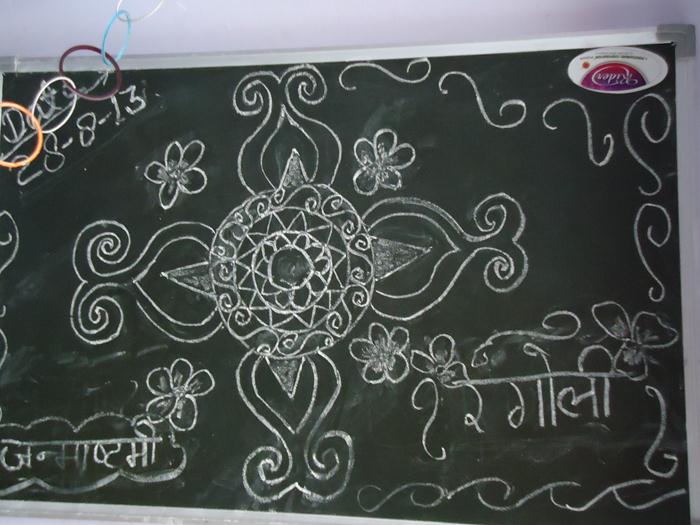 28-8-13
Rider
रंगोली
जन्माष्टमी